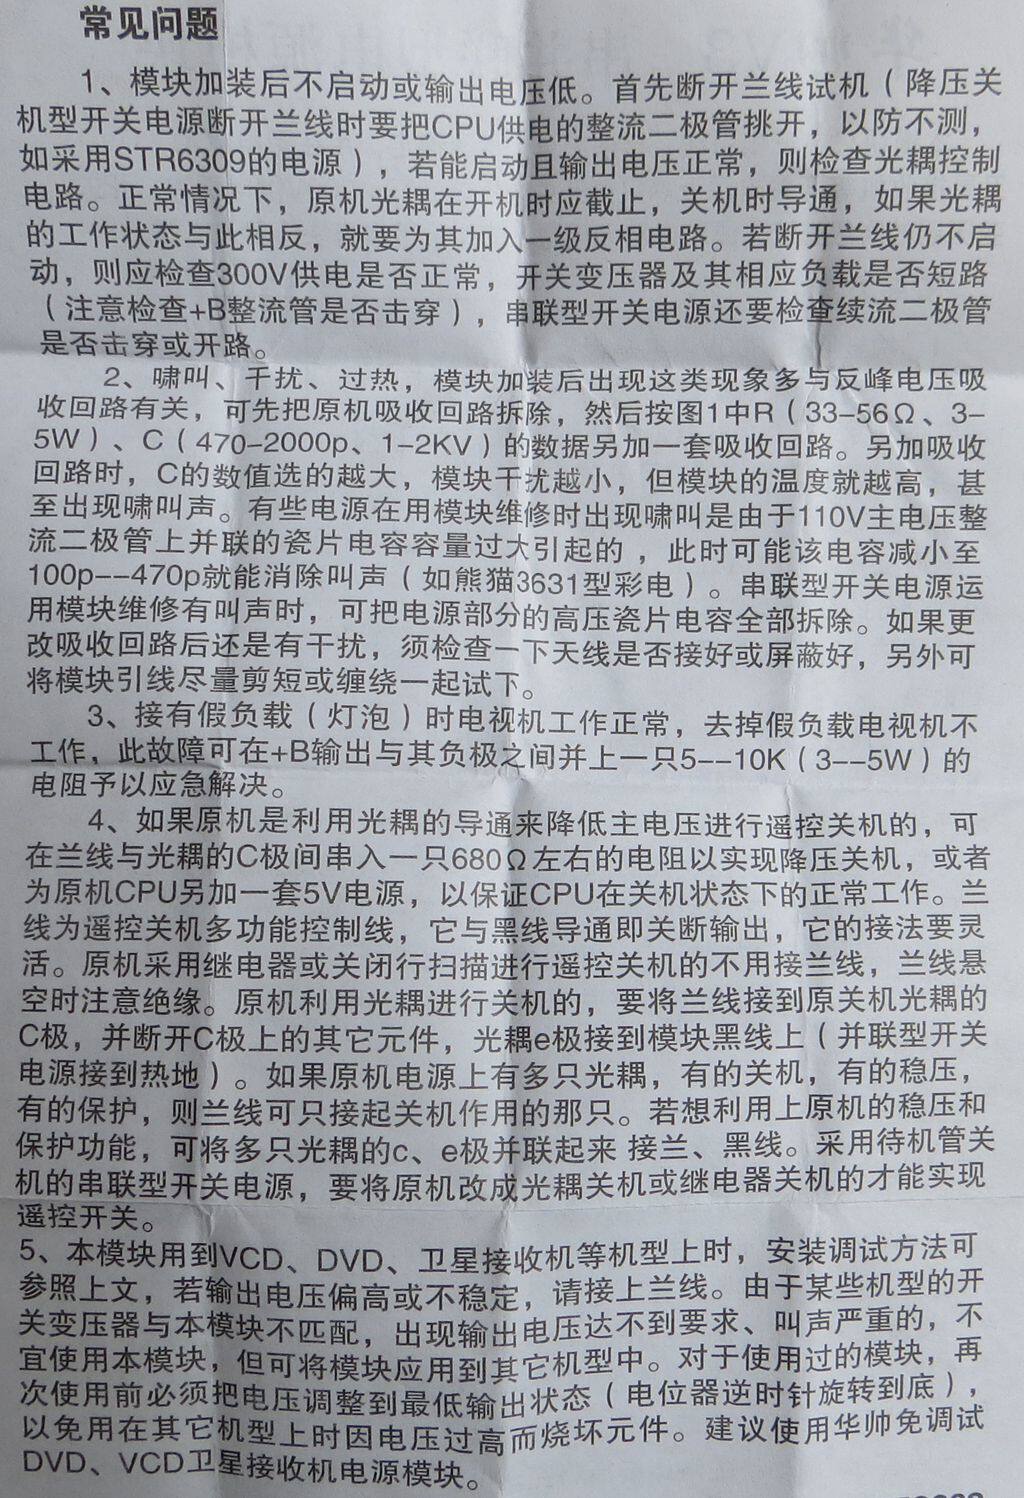 常见问题
1、模块加装后不启动或输出电压低。首先断开兰线试机（降压关
机型开关电源断开兰线时要把CPU供电的整流二极管挑开，以防不测，
如采用STR6309的电源），若能启动且输出电压正常，则检查光耦控制
电路。正常情况下，原机光耦在开机时应截止，关机时导通，如果光耦
的工作状态与此相反，就要为其加入一级反相电路。若断开兰线仍不启
动，则应检查300V供电是否正常，开关变压器及其相应负载是否短路
（注意检查+B整流管是否击穿），串联型开关电源还要检查续流二极管
是否击穿或开路。
2、啸叫、干扰、过热，模块加装后出现这类现象多与反峰电压吸
收回路有关，可先把原机吸收回路拆除，然后按图1中R（33-56Ω、3-
5W）、C（470-2000p、1-2KV）的数据另加一套吸收回路。另加吸收
回路时，C的数值选的越大，模块干扰越小，但模块的温度就越高，甚
至出现啸叫声。有些电源在用模块维修时出现啸叫是由于110V主电压整
流二极管上并联的瓷片电容容量过大引起的，此时可能该电容减小至
100p--470p就能消除叫声（如熊猫3631型彩电）。串联型开关电源运
用模块维修有叫声时，可把电源部分的高压瓷片电容全部拆除。如果更
改吸收回路后还是有干扰，须检查一下天线是否接好或屏蔽好，另外可
将模块引线尽量剪短或缠绕一起试下。
3、接有假负载（灯泡）时电视机工作正常，去掉假负载电视机不
工作，此故障可在+B输出与其负极之间并上一只5--10K（3--5W）的
电阻予以应急解决。
4、如果原机是利用光耦的导通来降低主电压进行遥控关机的，可
在兰线与光耦的C极间串入一只680Ω左右的电阻以实现降压关机，或者
为原机CPU另加一套5V电源，以保证CPU在关机状态下的正常工作。兰
线为遥控关机多功能控制线，它与黑线导通即关断输出，它的接法要灵
活。原机采用继电器或关闭行扫描进行遥控关机的不用接兰线，兰线悬
空时注意绝缘。原机利用光耦进行关机的，要将兰线接到原关机光耦的
C极，并断开C极上的其它元件，光耦e极接到模块黑线上（并联型开关
电源接到热地）。如果原机电源上有多只光耦，有的关机，有的稳压，
有的保护，则兰线可只接起关机作用的那只。若想利用上原机的稳压和
保护功能，可将多只光耦的c、e极并联起来 接兰、黑线。采用待机管关
机的串联型开关电源，要将原机改成光耦关机或继电器关机的才能实现
遥控开关。
5、本模块用到VCD、DVD、卫星接收机等机型上时，安装调试方法可
参照上文，若输出电压偏高或不稳定，请接上兰线。由于某些机型的开
关变压器与本模块不匹配，出现输出电压达不到要求、叫声严重的，不
宜使用本模块，但可将模块应用到其它机型中。对于使用过的模块，再
次使用前必须把电压调整到最低输出状态（电位器逆时针旋转到底），
以免用在其它机型上时因电压过高而烧坏元件。建议使用华帅免调试
DVD、VCD卫星接收机电源模块。